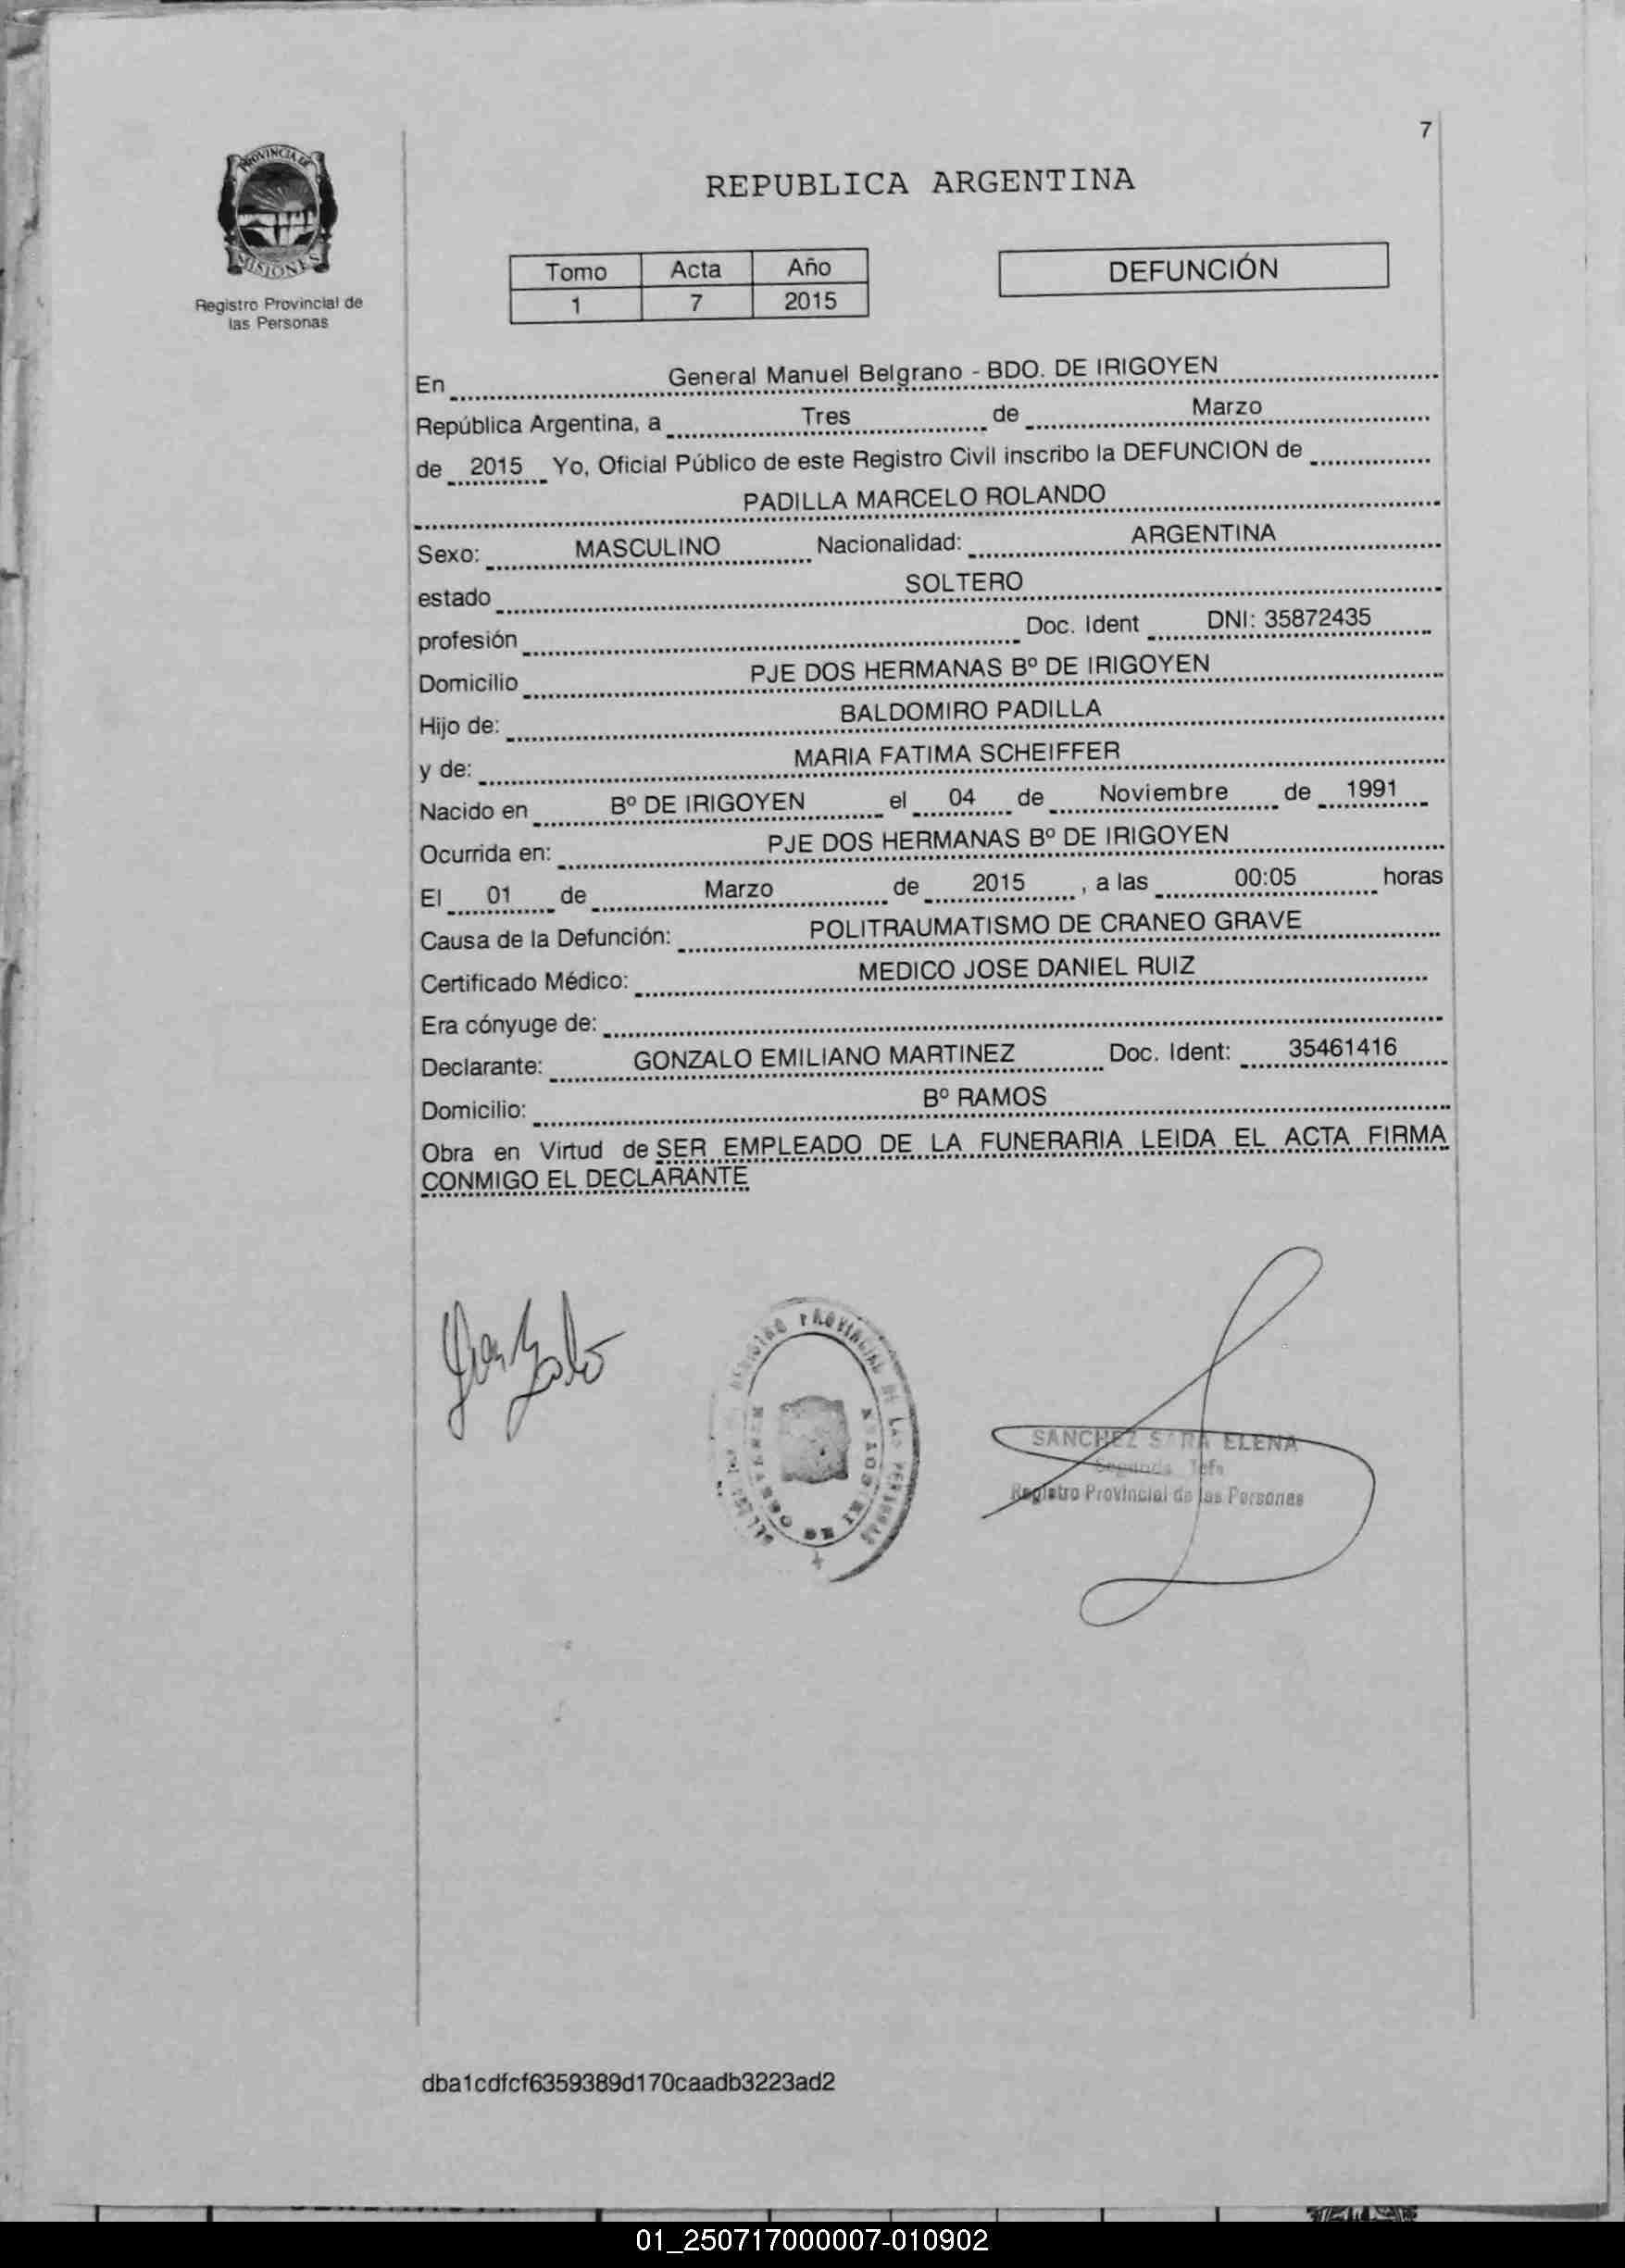 7
PROVINCIA DE
MISIONES
Registro Provincial de
las Personas
REPUBLICA ARGENTINA
Tomo Acta Año
1 7 2015
DEFUNCIÓN
En General Manuel Belgrano - BDO. DE IRIGOYEN
República Argentina, a Tres de Marzo
de 2015 Yo, Oficial Público de este Registro Civil inscribo la DEFUNCION de
PADILLA MARCELO ROLANDO
Sexo: MASCULINO Nacionalidad: ARGENTINA
estado SOLTERO
profesión Doc. Ident DNI: 35872435
Domicilio PJE DOS HERMANAS Bº DE IRIGOYEN
Hijo de: BALDOMIRO PADILLA
y de: MARIA FATIMA SCHEIFFER
Nacido en Bº DE IRIGOYEN el 04 de Noviembre de 1991
Ocurrida en: PJE DOS HERMANAS Bº DE IRIGOYEN
El 01 de Marzo de 2015 , a las 00:05 horas
Causa de la Defunción: POLITRAUMATISMO DE CRANEO GRAVE
Certificado Médico: MEDICO JOSE DANIEL RUIZ
Era cónyuge de:
Declarante: GONZALO EMILIANO MARTINEZ Doc. Ident: 35461416
Domicilio: Bº RAMOS
Obra en Virtud de SER EMPLEADO DE LA FUNERARIA LEIDA EL ACTA FIRMA
CONMIGO EL DECLARANTE
Gonzalo
REGISTRO PROVINCIAL DE LAS PERSONAS
SANCHEZ SARA ELENA
Segunda Jefa
Registro Provincial de las Personas
dba1cdfcf6359389d170caadb3223ad2
01_250717000007-010902